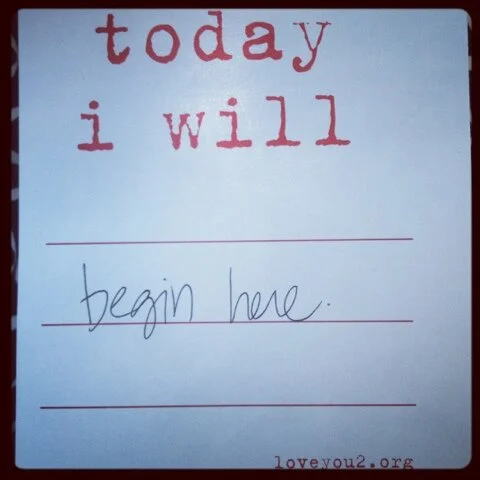 today
i will
begin here.
loveyou2.org